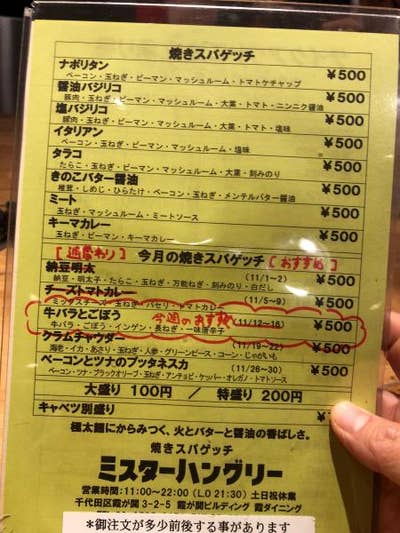 焼きスパゲッチ
ナポリタン ¥500
ベーコン・玉ねぎ・ピーマン・マッシュルーム・トマトケチャップ
醤油バジリコ ¥500
豚肉・玉ねぎ・ピーマン・マッシュルーム・大葉・トマト・ニンニク醤油
塩バジリコ ¥500
豚肉・玉ねぎ・ピーマン・マッシュルーム・大葉・トマト・塩味
イタリアン ¥500
ベーコン・玉ねぎ・ピーマン・マッシュルーム・塩味
タラコ ¥500
たらこ・玉ねぎ・マッシュルーム・大葉・刻みのり
きのこバター醤油 ¥500
椎茸・しめじ・ひらたけ・ベーコン・玉ねぎ・メンテルバター醤油
ミート ¥500
玉ねぎ・マッシュルーム・ミートソース
キーマカレー ¥500
玉ねぎ・ピーマン・キーマカレー
[週替わり] 今月の焼きスパゲッチ [おすすめ]
納豆明太 (11/1~2) ¥500
納豆・明太子・たらこ・玉ねぎ・万能ねぎ・刻みのり・白だし
チーズトマトカレー (11/5~9) ¥500
ミックスチーズ・玉ねぎ・パセリ・トマトカレー
牛バラとごぼう 今週のおすすめ (11/12~16) ¥500
牛バラ・ごぼう・インゲン・長ねぎ・一味唐辛子
クラムチャウダー (11/19~22) ¥500
海老・イカ・あさり・玉ねぎ・人参・グリーンピース・コーン・じゃがいも
ベーコンとツナのプッタネスカ (11/26~30) ¥500
ベーコン・ツナ・ブラックオリーブ・玉ねぎ・アンチョビ・ケッパー・オレガノ・トマトソース
大盛り 100円 / 特盛り 200円
キャベツ別盛り
極太麺にからみつく、火とバターと醤油の香ばしさ。
焼きスパゲッチ
ミスターハングリー
営業時間:11:00~22:00(L.O 21:30) 土日祝休業
千代田区霞が関3-2-5 霞が関ビルディング 霞ダイニング
*御注文が多少前後する事があります